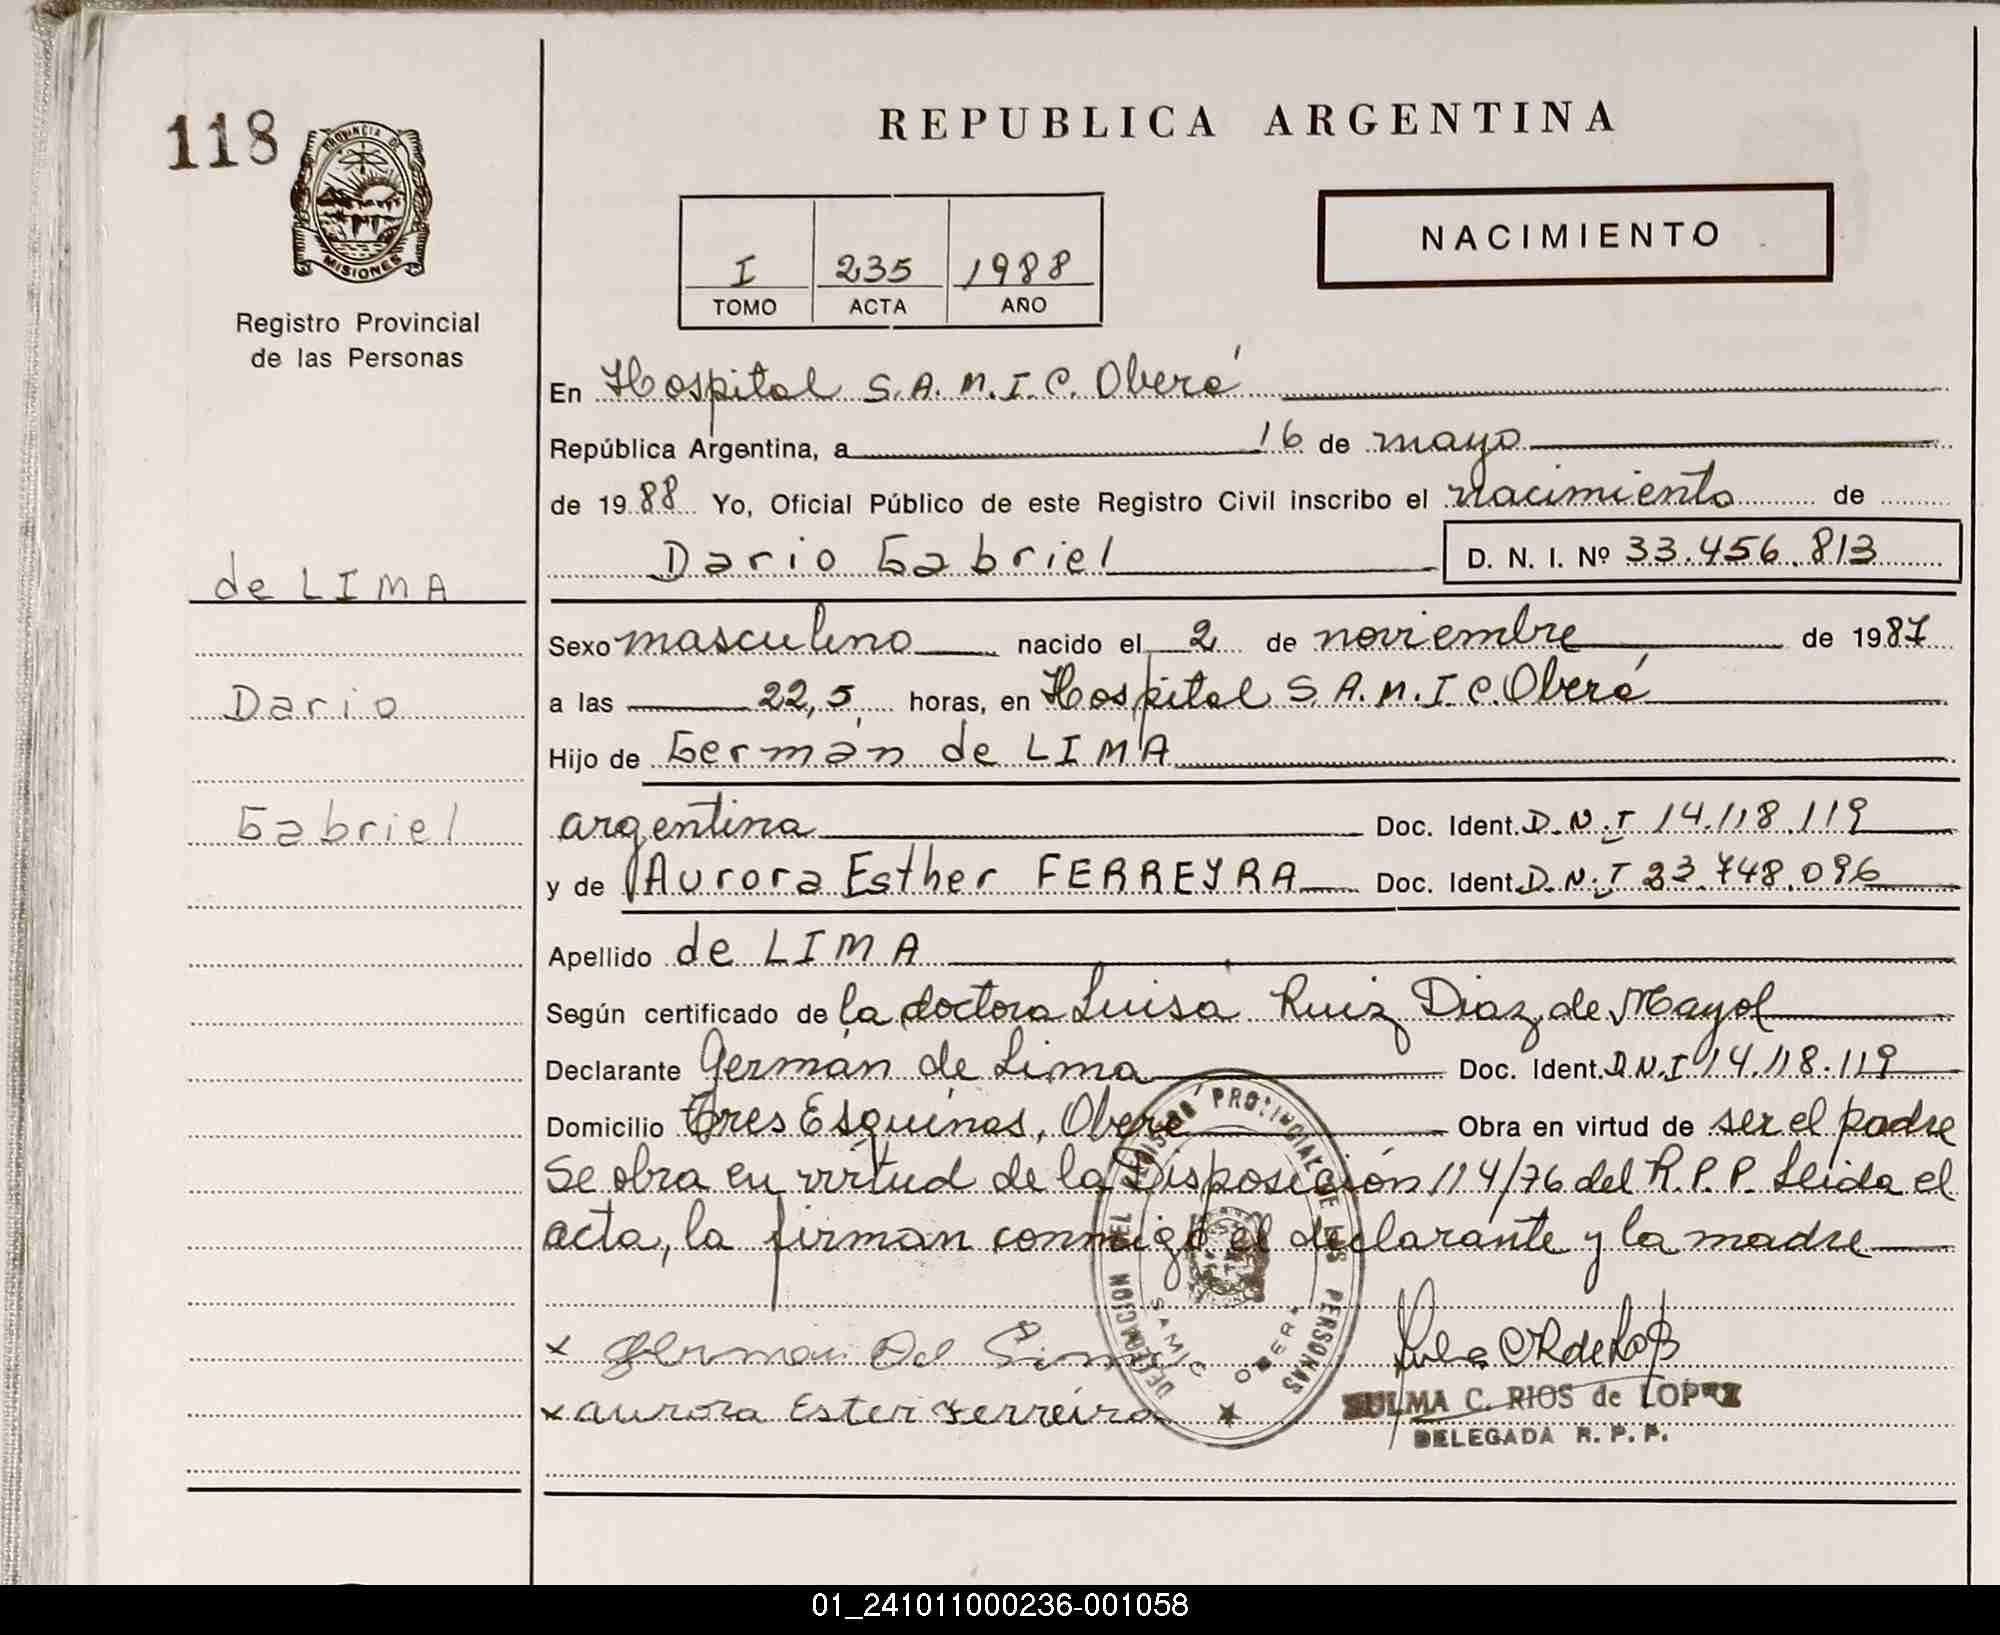 118
PROVINCIA DE
MISIONES
Registro Provincial
de las Personas
REPUBLICA ARGENTINA
I 235 1988
TOMO ACTA AÑO
NACIMIENTO
En Hospital S.A.M.I.C. Oberá
República Argentina, a 16 de mayo
de 1988 Yo, Oficial Público de este Registro Civil inscribo el nacimiento de
Dario Gabriel D. N. I. Nº 33.456.813
de LIMA
Dario
Gabriel
Sexo masculino nacido el 2 de noviembre de 1987
a las 22,5 horas, en Hospital S.A.M.I.C. Oberá
Hijo de Germán de LIMA
argentina Doc. Ident. D.N.I 14.118.119
y de Aurora Esther FERREYRA Doc. Ident. D.N.I 23.748.096
Apellido de LIMA
Según certificado de la doctora Luisa Ruiz Diaz de Mayol
Declarante Germán de Lima Doc. Ident. D.N.I 14.118.119
Domicilio Tres Esquinas, Oberá Obra en virtud de ser el padre
Se obra en virtud de la Disposición 114/76 del R.P.P. Leida el
acta, la firman conmigo el declarante y la madre
x German De Lima
x aurora Ester Ferreira
DELEGACION DEL REGISTRO PROVINCIAL DE LAS PERSONAS
SAMIC OBERA
SULMA C. RIOS de LOPEZ
DELEGADA R. P. P.
01_241011000236-001058